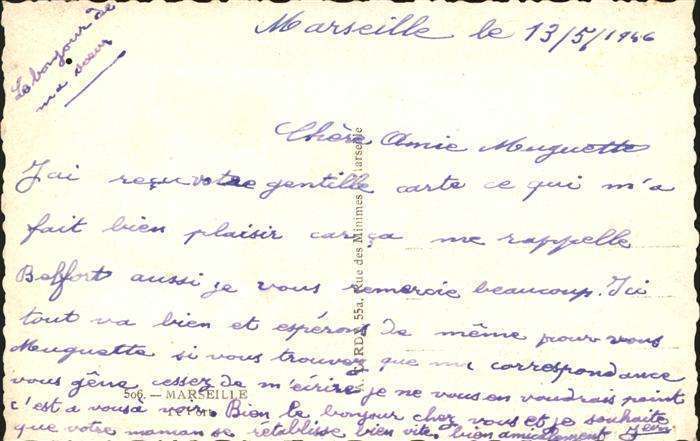 Le bonjour de
ma sœur
Marseille le 13/5/1946
Chère Amie Muguette
J'ai reçu votre gentille carte ce qui m'a
fait bien plaisir car ça me rappelle
Belfort aussi je vous remercie beaucoup. Ici
tout va bien et espérons de même pour vous
Muguette si vous trouvez que ma correspondance
vous gêne cessez de m'écrire je ne vous en voudrais point
c'est a vous a voir. Bien le bonjour chez vous et je souhaite
que votre maman se rétablisse bien vite. bien amicalement
55a, Rue des Minimes Marseille
506. — MARSEILLE